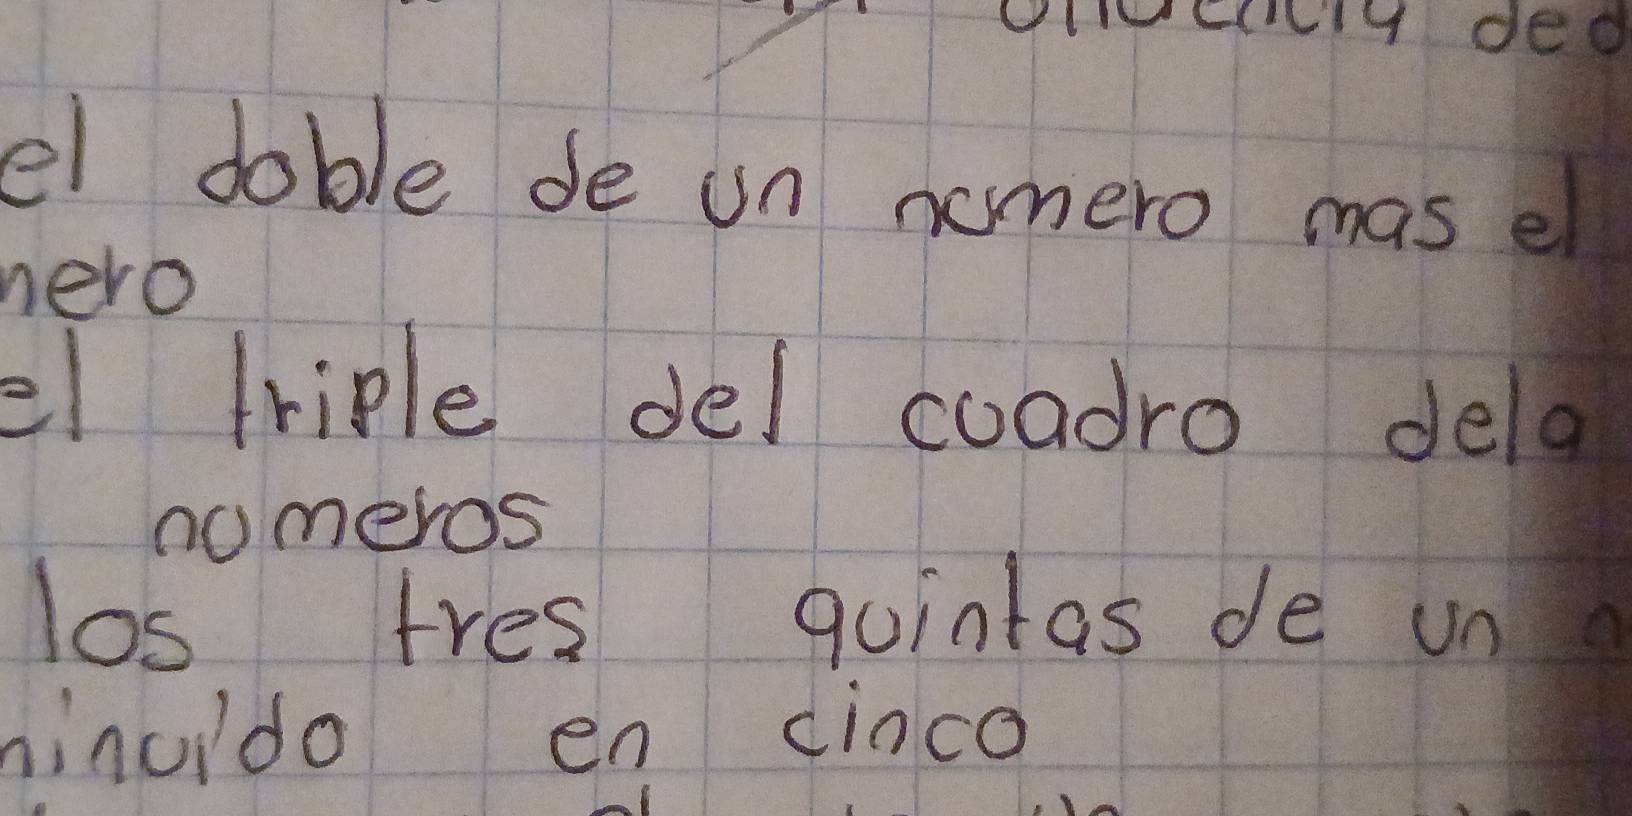 ded
el doble de un numero mas el
nero
el triple del cuadro dela
numeros
los tres quintas de un
ninuido en cinco